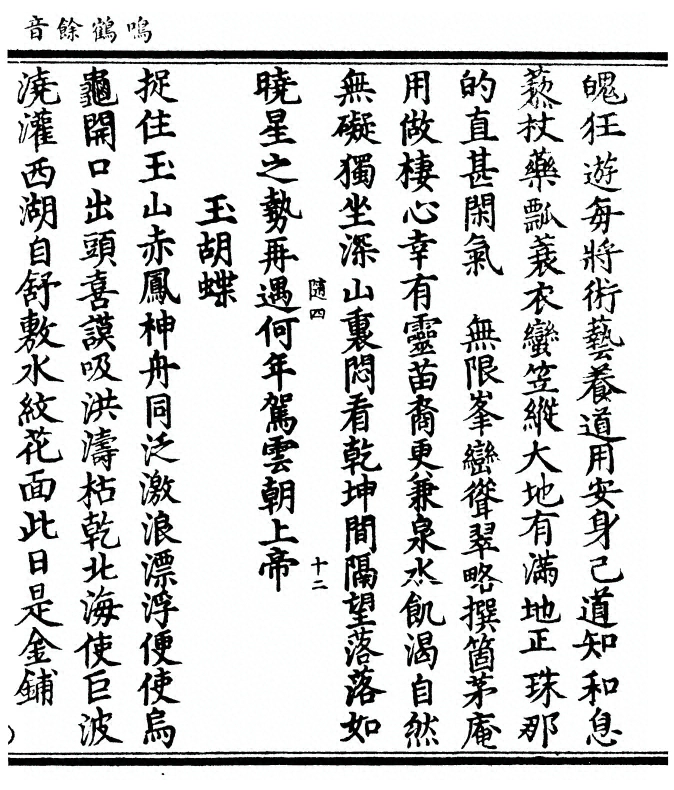 鳴鶴餘音
魄狂遊每將術藝養道用安身己道知和息
蔾杖藥瓢蓑衣蠻笠縱大地有滿地正珠那
的直甚閑氣　無限峯巒聳翠略撰箇茅庵
用做棲心幸有靈苗裔更兼泉水飢渴自然
無礙獨坐深山裏悶看乾坤間隔望落落如
隨四
十二
曉星之勢再遇何年駕雲朝上帝
玉胡蝶
捉住玉山赤鳳神舟同泛激浪漂浮便使烏
龜開口出頭喜謨吸洪濤枯乾北海使巨波
澆灌西湖自舒敷水紋花面此日是金鋪